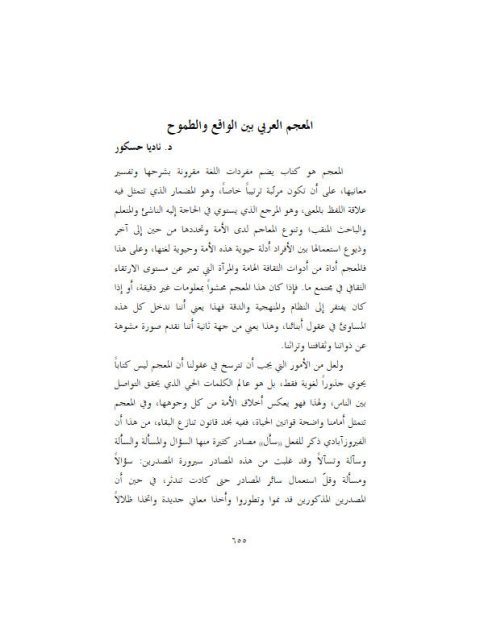 المعجم العربي بين الواقع والطموح
د. ناديا حسكور
المعجم هو كتاب يضم مفردات اللغة مقرونة بشرحها وتفسير
معانيها، على أن تكون مرتّبة ترتيباً خاصاً، وهو المضمار الذي تتمثل فيه
علاقة اللفظ بالمعنى، وهو المرجع الذي يستوي في الحاجة إليه الناشئ والمتعلم
والباحث المنقب، وتنوع المعاجم لدى الأمة وتجددها من حين إلى آخر
وذيوع استعمالها بين الأفراد أدلة حيوية هذه الأمة وحيوية لغتها، وعلى هذا
فالمعجم أداة من أدوات الثقافة الهامة والمرآة التي تعبر عن مستوى الارتقاء
الثقافي في مجتمع ما. فإذا كان هذا المعجم محشواً بمعلومات غير دقيقة، أو إذا
كان يفتقر إلى النظام والمنهجية والدقة فهذا يعني أننا ندخل كل هذه
المساوئ في عقول أبنائنا، وهذا يعني من جهة ثانية أننا نقدم صورة مشوهة
عن ذواتنا وثقافتنا وتراثنا.
ولعل من الأمور التي يجب أن تترسخ في عقولنا أن المعجم ليس كتاباً
يحوي جذوراً لغوية فقط، بل هو عالم الكلمات الحي الذي يحقق التواصل
بين الناس، ولهذا فهو يعكس أخلاق الأمة من كل وجوهها، وفي المعجم
تتمثل أمامنا واضحة قوانين الحياة، ففيه نجد قانون تنازع البقاء، من هذا أن
الفيروزآبادي ذكر للفعل ((سأل)) مصادر كثيرة منها السؤال والمسألة والسألة
وسآلة وتسآلاً وقد غلبت من هذه المصادر سيرورة المصدرين: سؤالاً
ومسألة وقلّ استعمال سائر المصادر حتى كادت تندثر، في حين أن
المصدرين المذكورين قد نموا وتطوروا وأخذا معاني جديدة واتخذا ظلالاً
٦٥٥